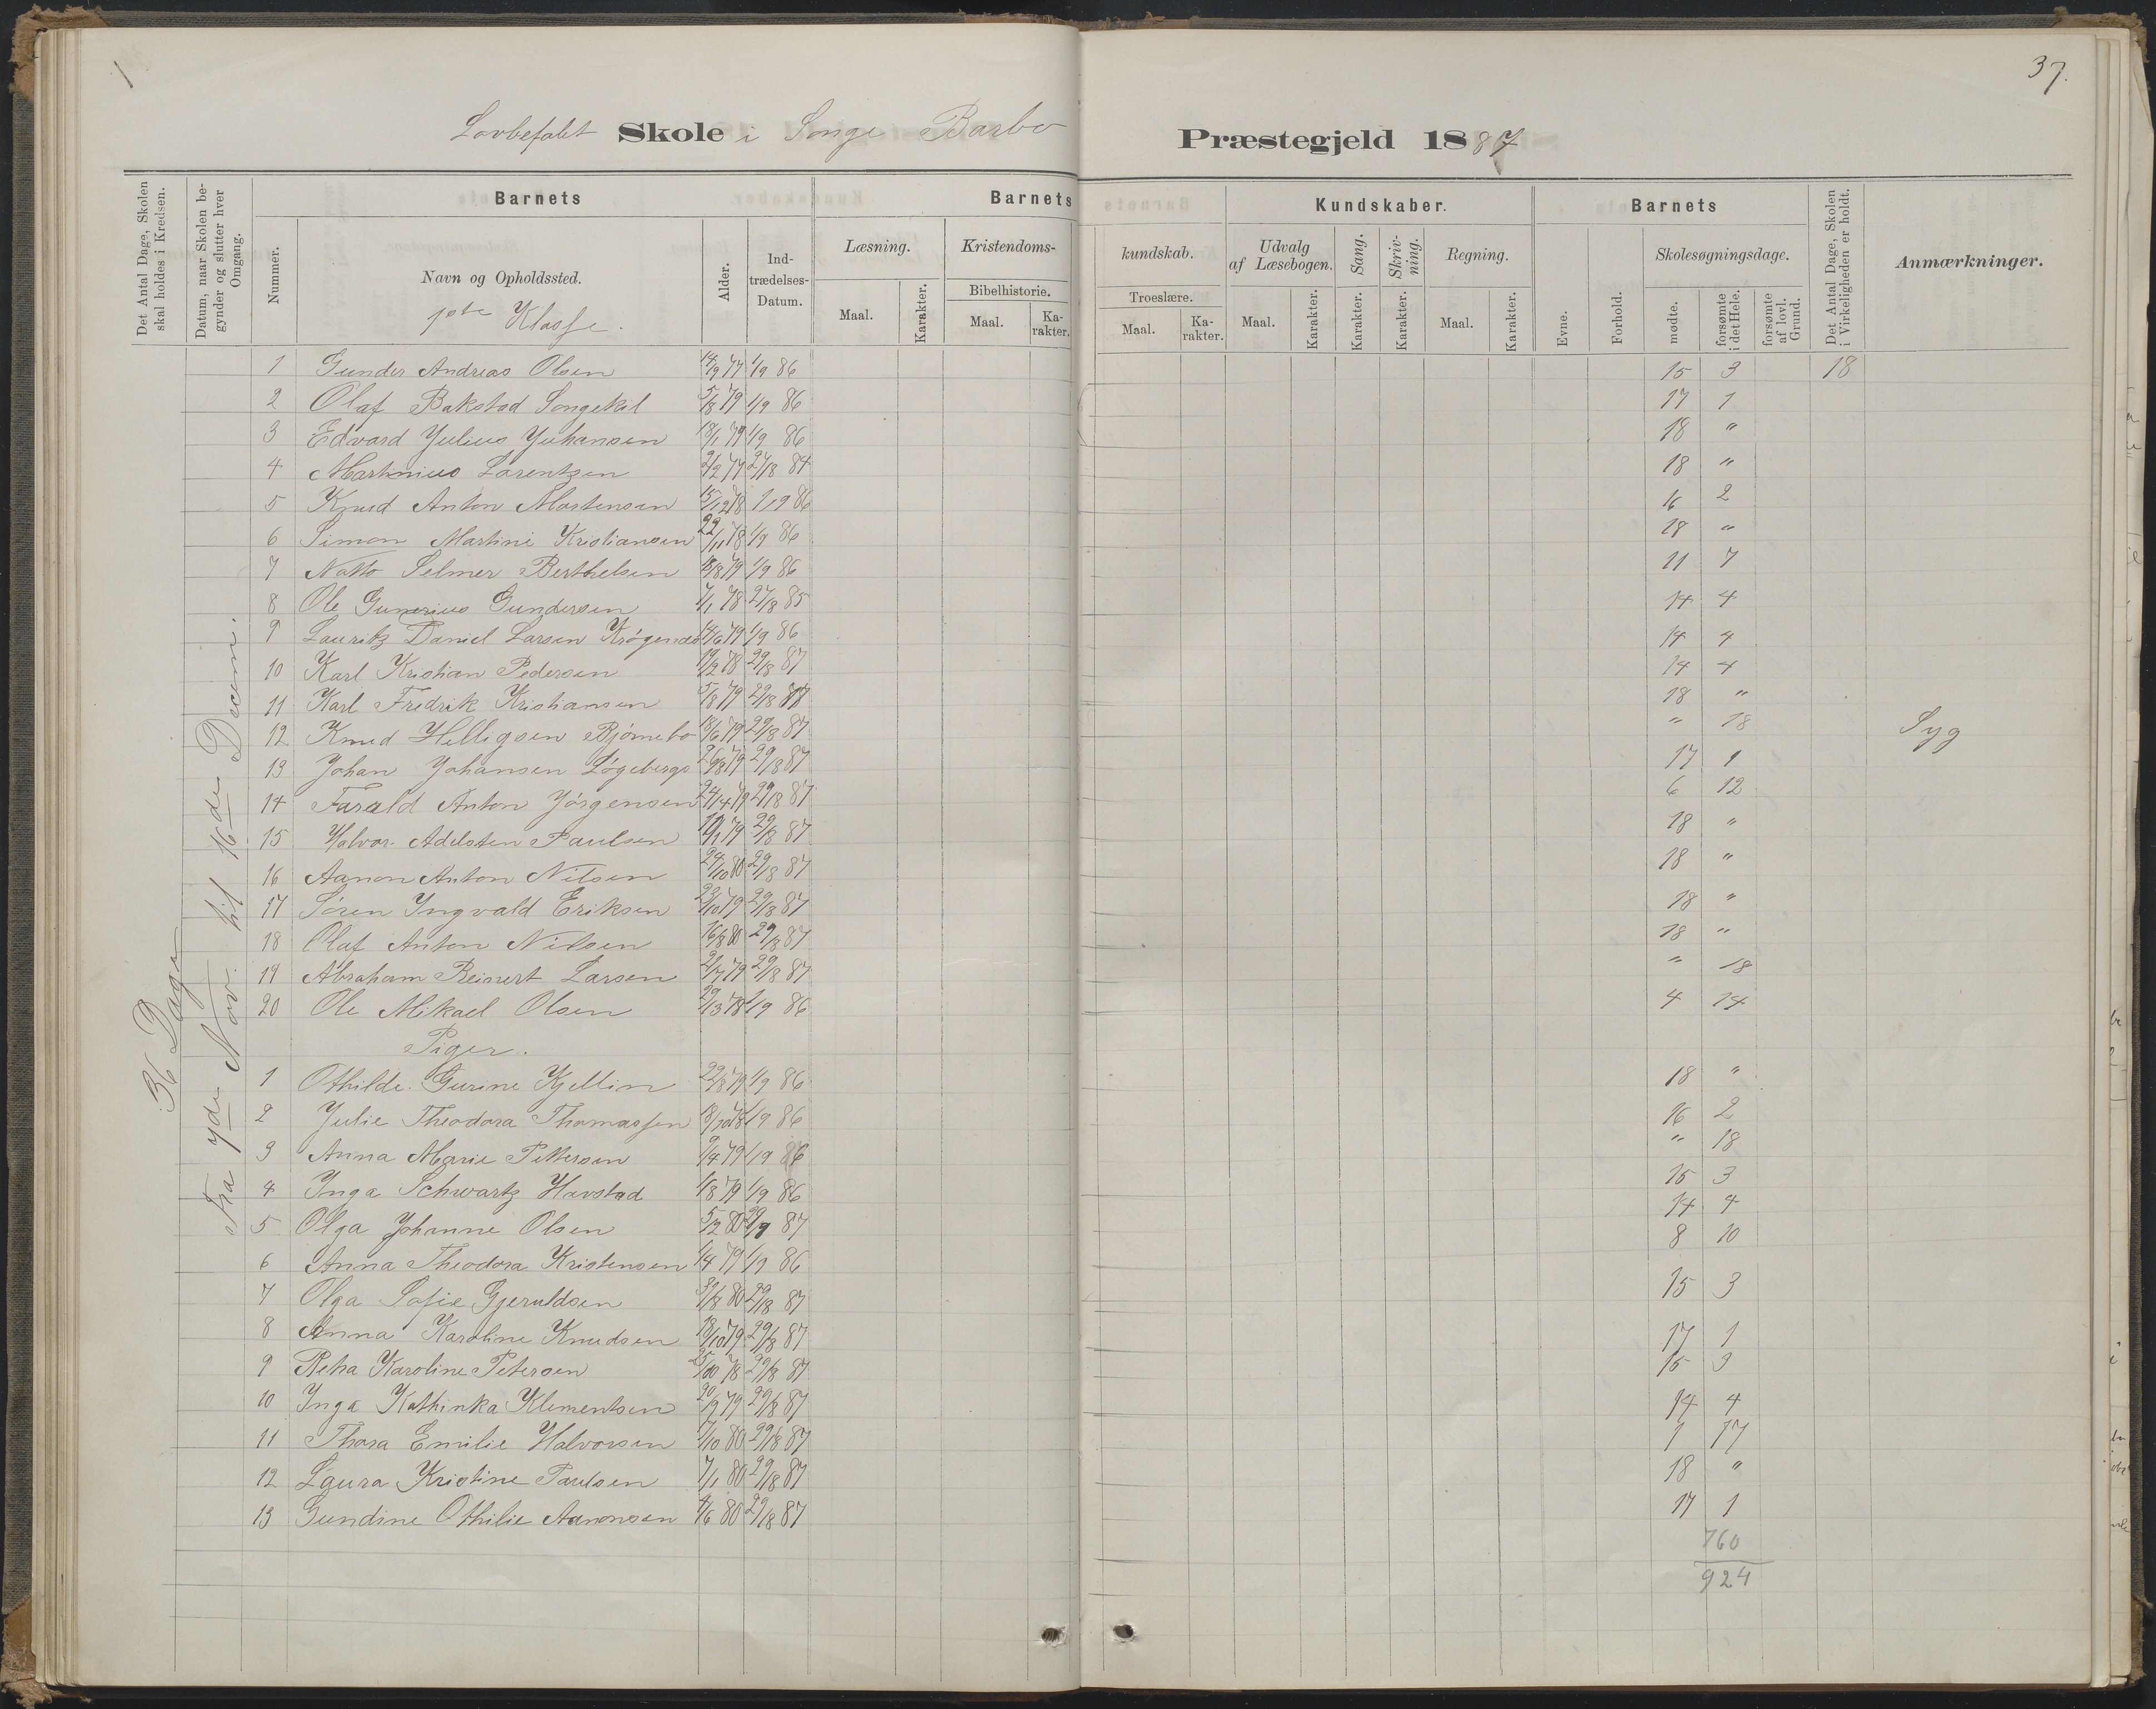 37.
Lovbefalet Skole i Songe Barbo Præstegjeld 1887
Det Antal Dage, Skolen skal holdes i Kredsen.
Datum, naar Skolen begynder og slutter hver Omgang.
Barnets
Barnets
Kundskaber.
Barnets
Det Antal Dage, Skolen i Virkeligheden er holdt.
Anmærkninger.
Nummer.
Navn og Opholdssted.
1ste Klasse.
Alder.
Indtrædelses-Datum.
Læsning.
Maal.
Karakter.
Kristendoms-
kundskab.
Bibelhistorie.
Maal.
Karakter.
Troeslære.
Maal.
Karakter.
Udvalg af Læsebogen.
Maal.
Karakter.
Sang.
Karakter.
Skrivning.
Karakter.
Regning.
Maal.
Karakter.
Evne.
Forhold.
Skolesøgningsdage.
mødte.
forsømte i det Hele.
forsømte af lovl. Grund.
36 Dage
Fra 7de Nov. til 16de Decem.
1 Gunder Andreas Olsen 14/9 77 1/9 86 15 3 18
2 Olaf Bakstad Songekil 5/8 79 1/9 86 17 1
3 Edvard Julius Juhansen 18/1 79 1/9 86 18 "
4 Martinius Larentzen 2/2 77 27/8 84 18 "
5 Knud Anton Mortensen 15/12 78 1/9 86 16 2
6 Simon Martini Kristiansen 22/11 78 1/9 86 18 "
7 Natto Selmer Berthelsen 18/8 79 1/9 86 11 7
8 Ole Gunerius Gundersen 7/1 78 27/8 85 14 4
9 Lauritz Daniel Larsen Krøgenæs 14/6 79 1/9 86 14 4
10 Karl Kristian Pedersen 19/2 78 29/8 87 14 4
11 Karl Fredrik Kristiansen 5/8 79 29/8 87 18 "
12 Knud Helligsen Bjørnebo 18/6 79 29/8 87 " 18 Syg
13 Johan Johansen Løgebergs 26/8 79 29/8 87 17 1
14 Farald Anton Jørgensen 24/4 79 29/8 87 6 12
15 Halvor Adelsten Paulsen 79 29/8 87 18 "
16 Aanon Anton Nilsen 24/10 80 29/8 87 18 "
17 Søren Yngvald Eriksen 23/10 79 29/8 87 18 "
18 Olaf Anton Nilsen 16/8 80 29/8 87 18 "
19 Abraham Reinert Larsen 2/7 79 29/8 87 " 18
20 Ole Mikael Olsen 29/3 78 1/9 86 4 14
Piger.
1 Othilde Gurine Kjellin 22/8 79 1/9 86 18 "
2 Julie Theodora Thomassen 18/10 78 1/9 86 16 2
3 Anna Marie Pettersen 9/4 79 1/9 86 " 18
4 Inga Schwartz Havstad 1/8 79 1/9 86 15 3
5 Olga Johanne Olsen 5/2 80 87 14 4
6 Anna Theodora Kristensen 1/4 79 1/9 86 8 10
7 Olga Sofie Gjeruldsen 80 29/8 87 15 3
8 Anna Karoline Knudsen 18/10 79 29/8 87 17 1
9 Reha Karoline Petersen 25/10 78 29/8 87 15 3
10 Inga Kathinka Klementsen 20/2 79 29/8 87 14 4
11 Thora Emilie Halvorsen 1/10 80 29/8 87 1 17
12 Laura Kristine Paulsen 7/1 80 29/8 87 18 "
13 Gundine Othilie Aanonsen 4/6 80 29/8 87 17 1
760
924